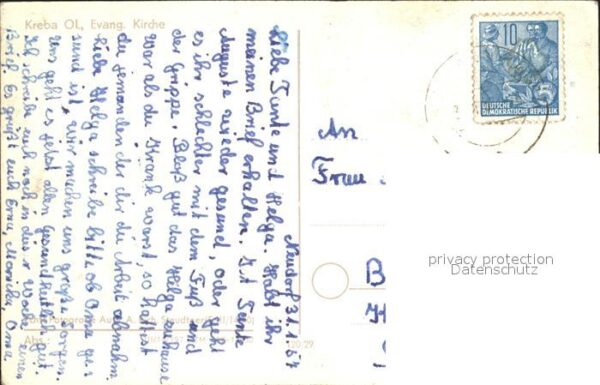 Kreba OL, Evang. Kirche
10
DEUTSCHE
DEMOKRATISCHE REPUBLIK
Neudorf 31.1.57
Liebe Tante und Helga. Habt ihr
meinen Brief erhalten. Ist Tante
Auguste wieder gesund, oder geht
es ihr schlechter mit dem Fuß und
der Grippe. Bloß gut das Helga zuhause
war als du krank warst, so hattest
du jemanden der dir die Arbeit abnahm.
Liebe Helga schreibe bitte ob Oma ge-
sund ist, wir machen uns große Sorgen.
Uns geht es jetzt allen gesundheitlich gut.
Ich schreibe euch noch in dieser Woche einen
Brief. Es grüßt euch Erna, Marika, Oma.
An
Frau
B
H
Abs.:
privacy protection
Datenschutz